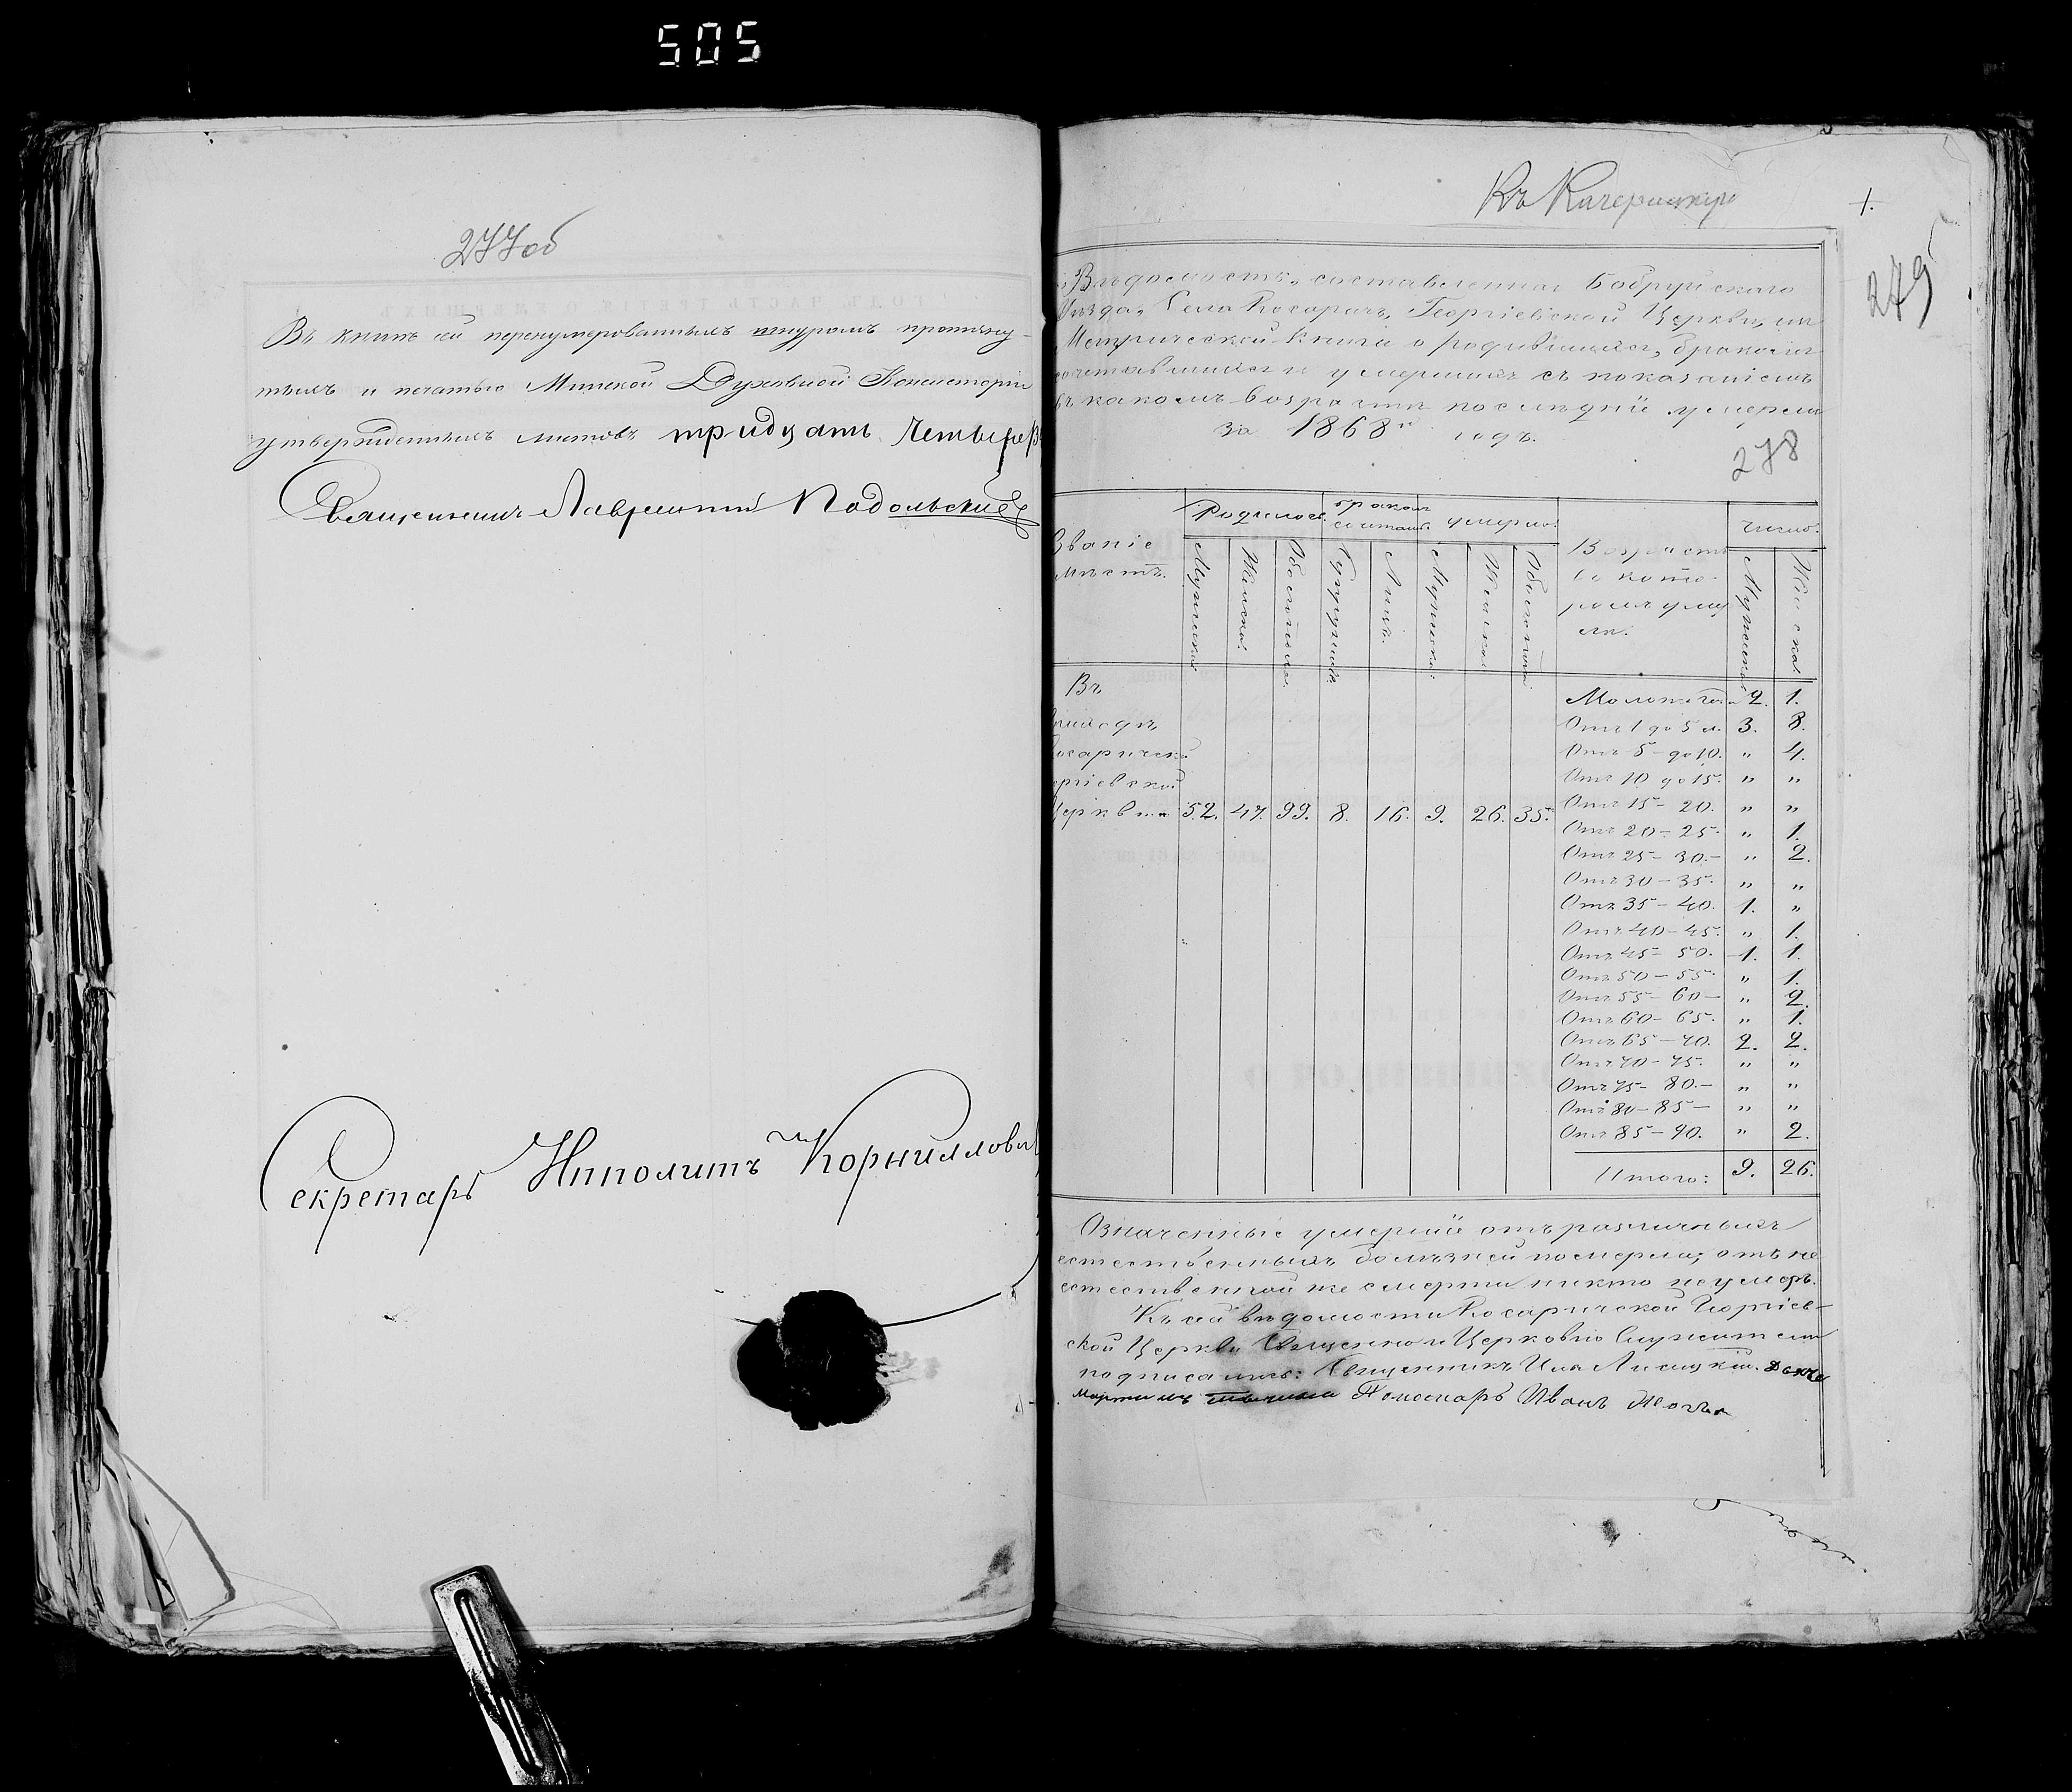 505
277 об
Въ книгѣ сей перенумерованныхъ шнуромъ протяну-
тыхъ и печатью Минской Духовной Консисторіи
утвержденныхъ листовъ тридцать четыре
Священникъ Лаврентій Подольскій
Секретарь Ипполитъ Корниллови
Къ
1.
279
Вѣдомость, составленная Бобруйскаго
Уѣзда, Села Косаричъ, Георгіевской Церкви, въ
Метрической книгѣ о родившихся, бракомъ
сочетавшихся и умершихъ съ показаніемъ
въ какомъ возрастѣ послѣдніе умерли
за 1868й годъ.
278
Званіе мѣстъ.
Родилось. бракомъ сочетав. умерло.
Возрастъ въ которомъ умерли.
число.
Мужеска. Женска. Обоего пола. Супружест. Лицъ. Мужеска. Женска. Обоего пола. Мужеска. Женска.
Въ
приходѣ
Косаричской
Георгіевской
Церкви 52. 47. 99. 8. 16. 9. 26. 35.
Моложе года 2. 1.
Отъ 1 до 5 л. 3. 8.
Отъ 5 – до 10. „ 4.
Отъ 10 до 15. „ „
Отъ 15 – 20. „ „
Отъ 20 – 25. „ 1.
Отъ 25 – 30. – „ 2.
Отъ 30 – 35. „ „
Отъ 35 – 40. 1. „
Отъ 40 – 45. „ 1.
Отъ 45 – 50. 1. 1.
Отъ 50 – 55. „ 1.
Отъ 55 – 60 – „ 2.
Отъ 60 – 65. „ 1.
Отъ 65 – 70. 2. 2.
Отъ 70 – 75. „ „
Отъ 75 – 80. – „ „
Отъ 80 – 85 – „ „
Отъ 85 – 90. „ 2.
Итого: 9. 26.
Означенные умершіе отъ различныхъ
естественныхъ болѣзней померли; отъ не
естественной же смерти никто неумеръ.
Къ сей вѣдомости Косаричской Георгіев-
ской Церкви Священно и Церковно Служители
подписались: Священникъ Илія Лисицкій.
Пономарь Иванъ